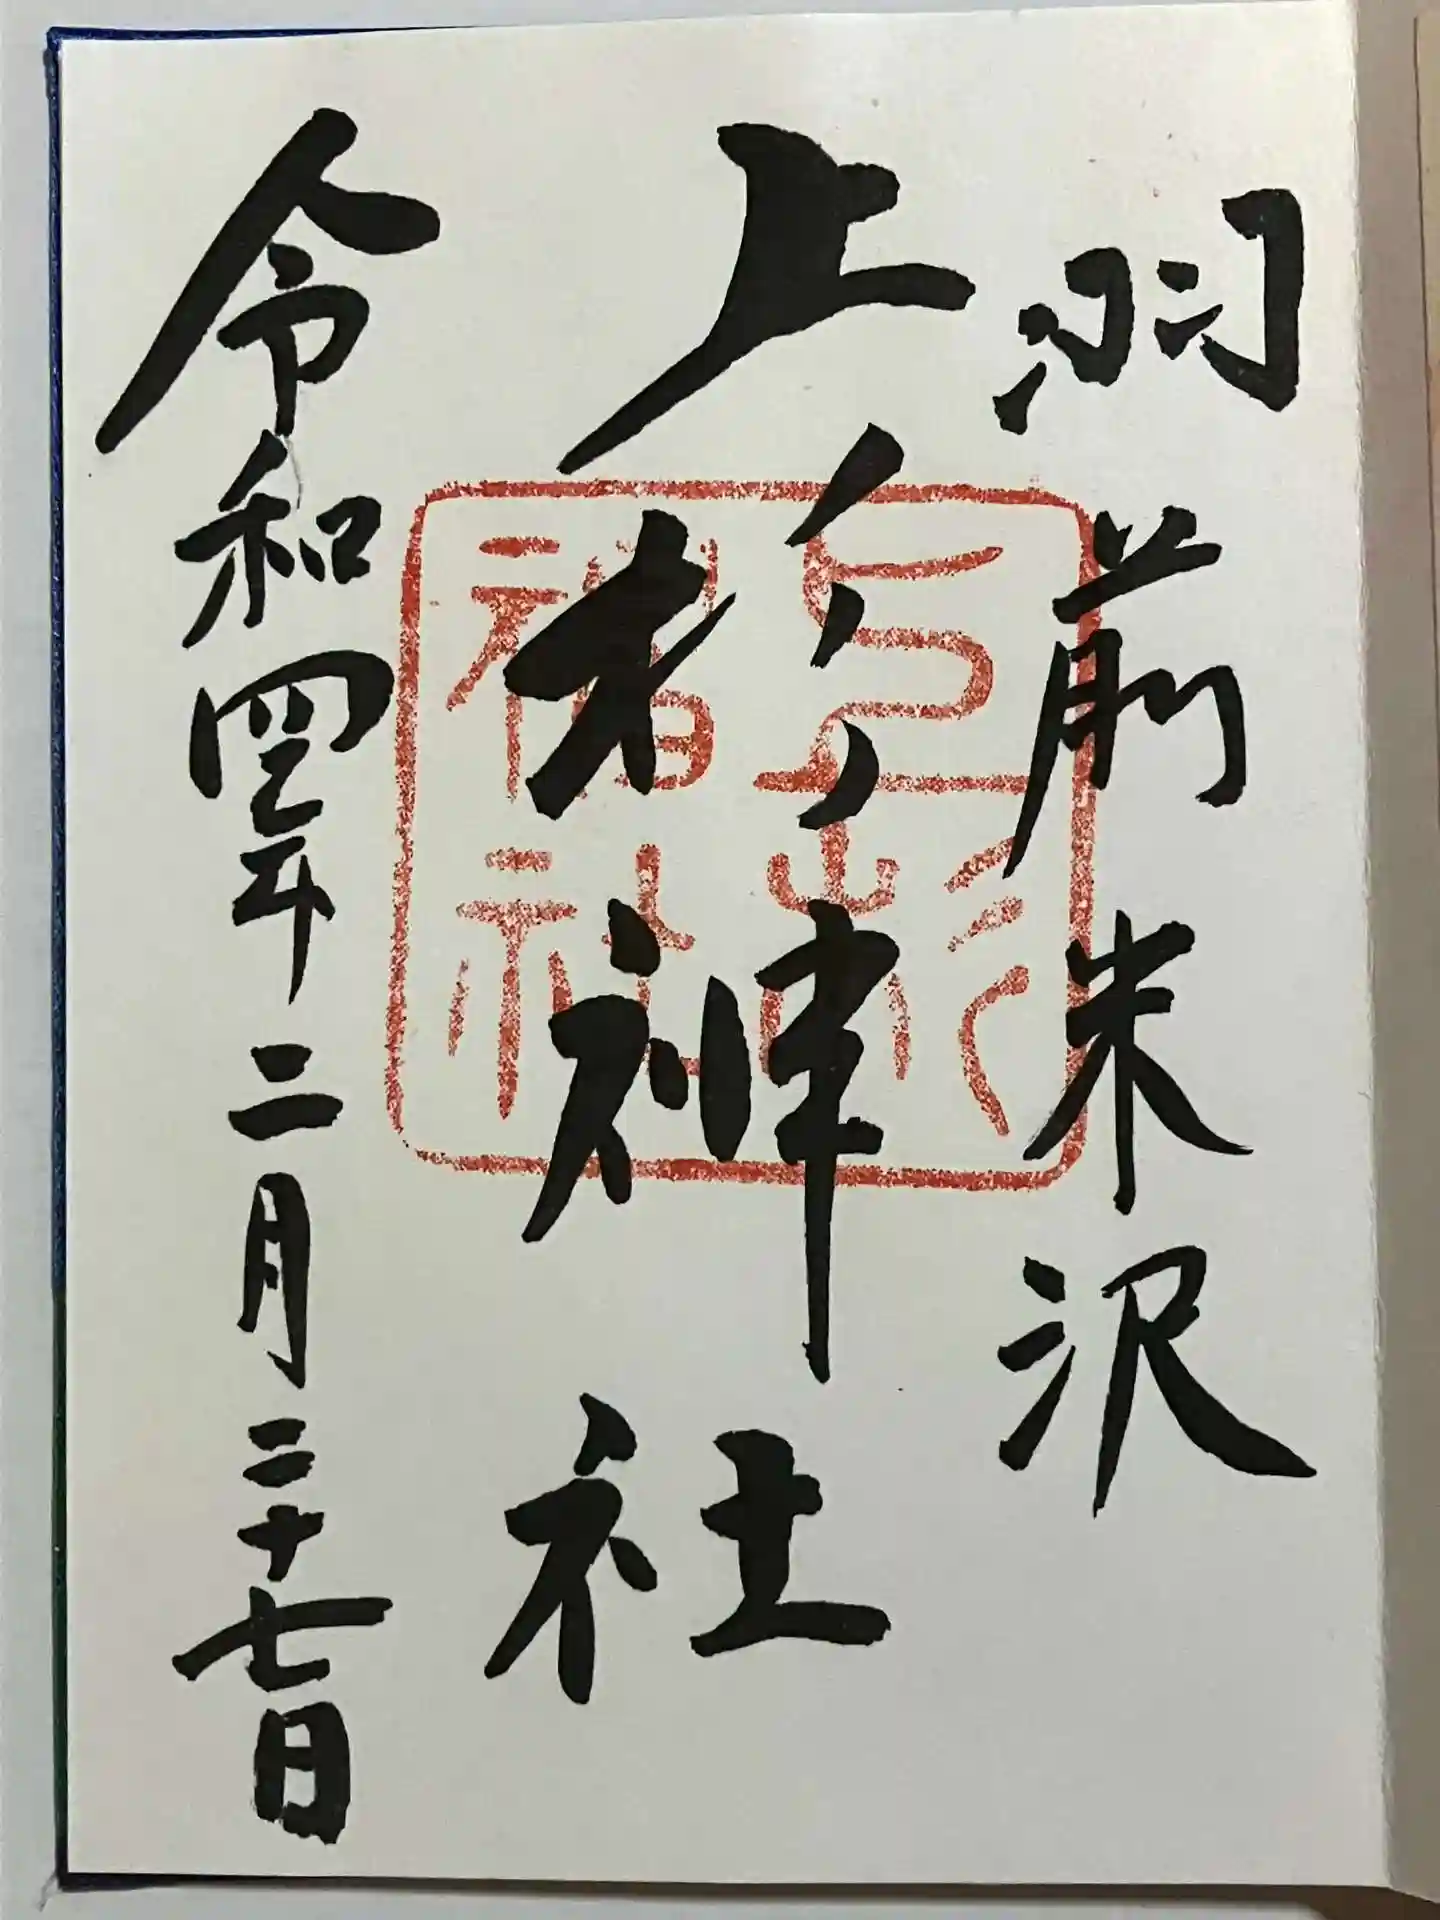 羽前米沢
上杉神社
令和四年二月二十七日
上杉
神社